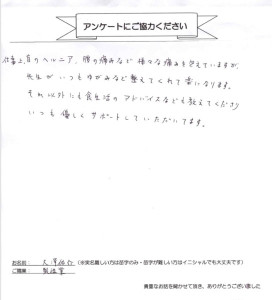 アンケートにご協力ください
仕事上、首のヘルニア、腰の痛みなど様々な痛みを抱えていますが、
先生がいつもゆがみなど整えてくれて楽になります。
それ以外にも食生活のアドバイスなども教えてくださり
いつも優しくサポートしていただいてます。
お名前： (※実名難しい方は苗字のみ・苗字が難しい方はイニシャルでも大丈夫です)
ご職業： 製造業
貴重なお話を聞かせて頂き、ありがとうございました